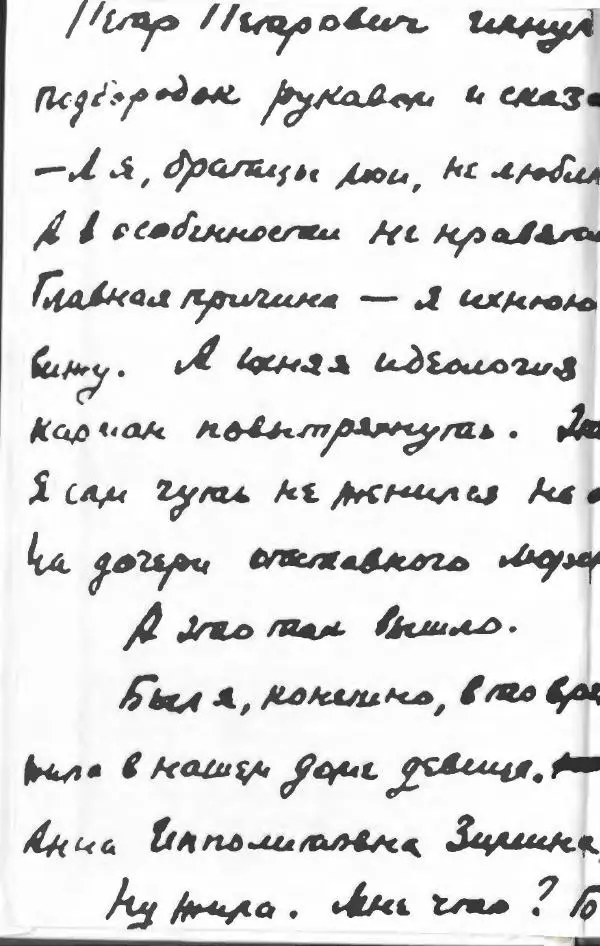 Петр Петрович икнул
подбородок рукавом и сказ
— А я, братцы мои, не люблю
А в особенности не нравятся
Главная причина — я ихнюю
вижу. А ихняя идеология
карман повытряхнуть.
Я сам чуть не женился на
На дочери отставного
А это так вышло.
Был я, конешно, в то вре
жила в нашем доме девица.
Анна Ипполитовна
Ну жила. Мне что? Го